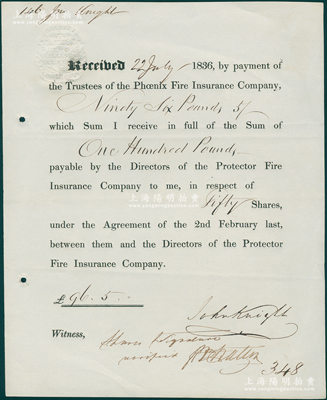 146 Jno Knight
上海陽明拍賣
Received 22 July 1836, by payment of
the Trustees of the Phœnix Fire Insurance Company,
Ninety Six Pounds 5/
which Sum I receive in full of the Sum of
One Hundred Pounds
payable by the Directors of the Protector Fire
Insurance Company to me, in respect of
Fifty Shares,
under the Agreement of the 2nd February last,
between them and the Directors of the Protector
Fire Insurance Company.
£96.5
John Knight
Witness,
348
上海陽明拍賣